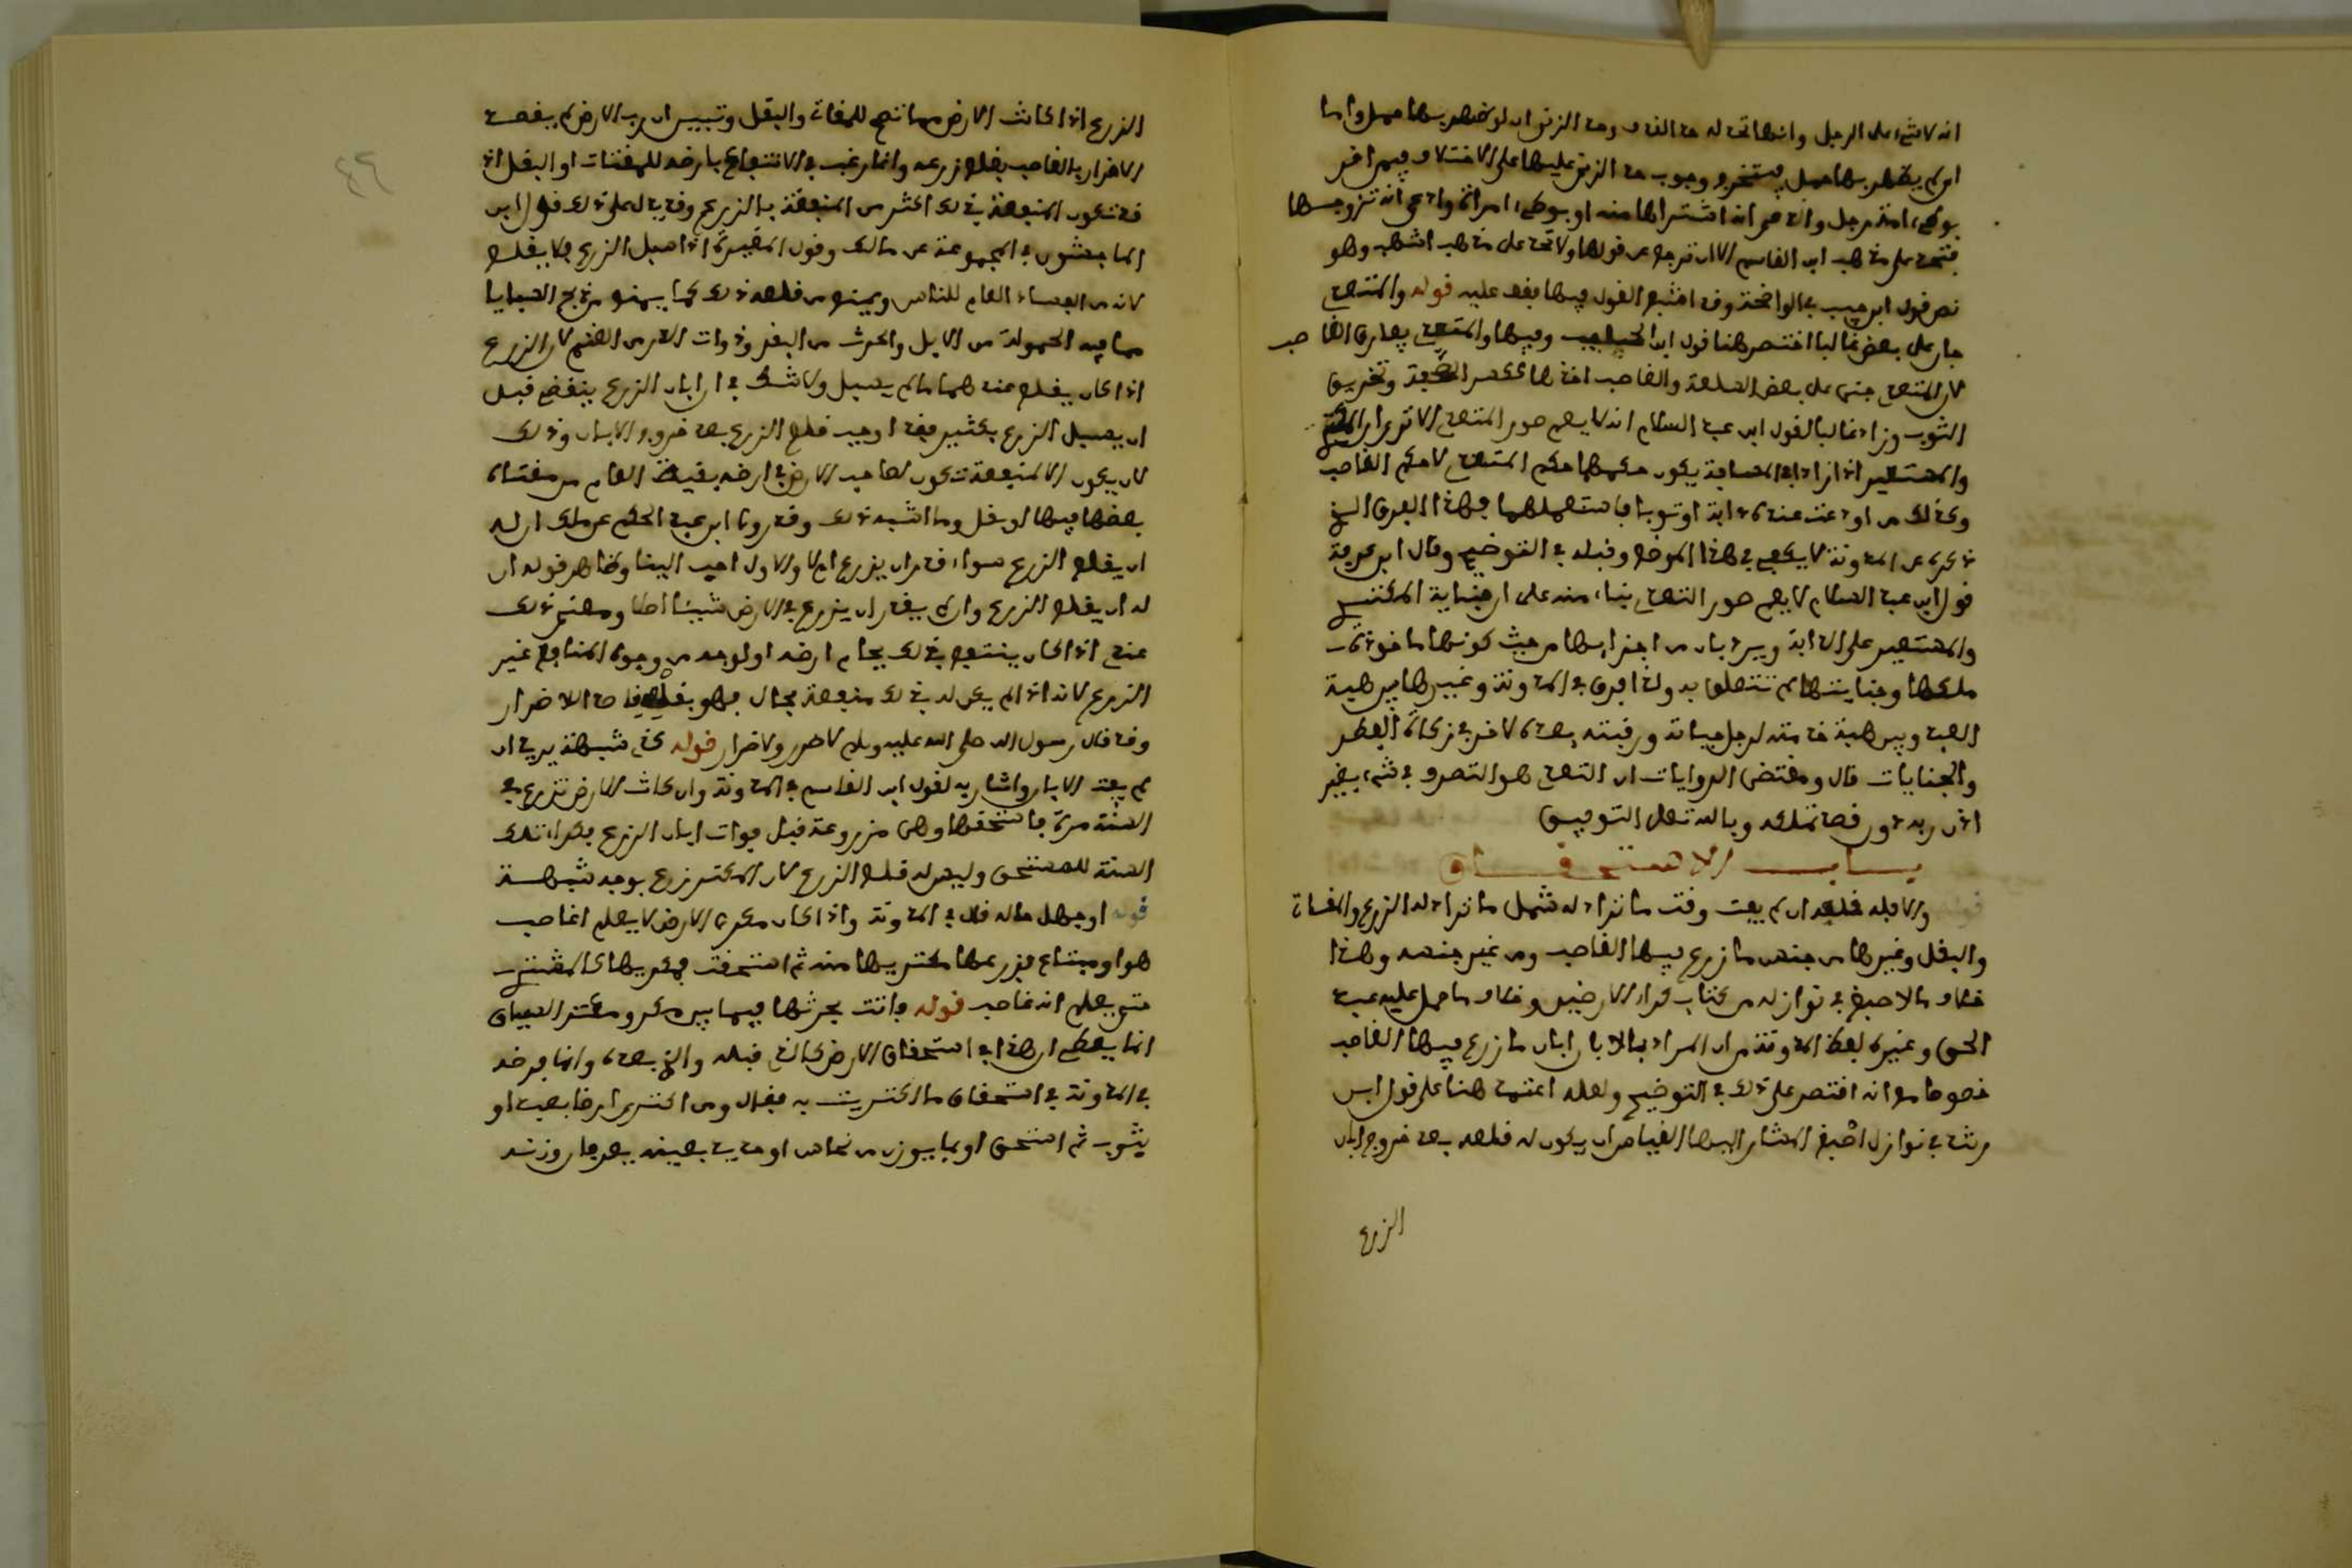 انه لا شيء على الرجل وانها تحد له حد القذف وحد الزنى ان لو ظهر بها حمل واما
ان لم يظهر بها حمل فيتخرج وجوب حد الزنى عليها على الاختلاف فيمن اقر
بوطء امة رجل وادعى انه اشتراها منه او بوطء امراة وادعى انه تزوجها
فتحد على مذهب ابن القاسم الا ان ترجع عن قولها ولا تحد على مذهب اشهب وهو
نص قول ابن حبيب في الواضحة وقد القول فيها بفف عليه قوله والمتعدي
جار على بعض غالبا اختصر هنا قول ابن وفيها والمتعدي يفارق الغاصب
لان المتعدي جنى على بعض السلعة والغاصب اخذها ككسر الصحفة وتخريق
الثوب وزاد غالبا لقول ابن عبد السلام انه لا يعم صور المتعدي الا ترى ان المكتري
والمستعير اذا زادا في المسافة يكون حكمهما حكم المتعدي لا حكم الغاصب
وكذلك من اودعت عنده دابة او ثوبا فاستعملهما فهذا الفرق الذي
ذكره عن المدونة لا يكفي في هذا الموضع وقبله في التوضيح وقال ابن عرفة
قول ابن عبد السلام لا يعم صور التعدي بناء منه على ان جناية المكتري
والمستعير على الدابة ويرد بان من اجزائها من حيث كونها ماخوذة
ملكها وجنايتها لم تتعلق به ولذا فرق في المدونة وغيرها بين هبة
العبد وبين هبة خدمته لرجل حياته ورقبته بعده لاخر في زكاة الفطر
والجنايات قال ومقتضى الروايات ان التعدي هو التصرف في شيء بغير
اذن ربه دون قصد تملكه وبالله تعالى التوفيق
باب الاستحقاق
قوله والا فله قلعه ان لم يفت وقت ما تراد له شمل ما تراد له الزرع والمقثاة
والبقل وغيرها من جنس ما زرع فيها الغاصب ومن غير جنسه وهذا
خلاف ما لاصبغ في نوازله من كتاب كراء الارضين وخلاف ما حمل عليه عبد
الحق وغيره لفظ المدونة من ان المراد بالابان ابان ما زرع فيها الغاصب
خصوصا مع انه اقتصر على ذلك في التوضيح ولعله اعتمد هنا على قول ابن
رشد في نوازل اصبغ المشار اليها القياس ان يكون له قلعه بعد خروج ابان
الزرع
الزرع اذا كانت الارض مما تصح للمقاة والبقل وتبين ان رب الارض لم يقصد
الاضرار بالغاصب بقلع زرعه وانما رغب في الانتفاع بارضه للمقثات او البقل اذ
قد تكون المنفعة في ذلك اكثر من المنفعة بالزرع وقد يدل على ذلك قول ابن
الماجشون في المجموعة عن مالك وقول المغيرة اذا سبل الزرع فلا يقلع
لانه من الفساد العام للناس ويمنع من قلعه ذلك كما يمنع من ذبح الفتايا
مما فيه الحمولة من الابل والحرث من البقر وذوات الدر من الغنم لان الزرع
اذا كان يقلع عندهما ما لم يسبل ولا شك في ان ابان الزرع ينقضي قبل
ان يسبل الزرع بكثير فقد اوجب قلع الزرع بعد خروج الابان وذلك
لان يكون الا لمنفعة تكون لصاحب الارض في ارضه بقية العام من مقثاة
يضعها فيها او بقل وما اشبه ذلك وقد روى ابن عبد الحكم عن مالك ان له
ان يقلع الزرع سواء قدر ان يزرع ام لا والاول احب الينا وظاهر قوله ان
له ان يقلع الزرع وان لم يقدر ان يزرع في الارض شيئا اصلا ومعنى ذلك
عندي اذا كان ينتفع في ذلك بجمام ارضه او لوجه من وجوه المنافع غير
الزرع لانه اذا لم يكن له في ذلك منفعة بحال فهو بقلعه قاصد الاضرار
وقد قال رسول الله صلى الله عليه وسلم لا ضرر ولا ضرار قوله كذي شبهة يريد ان
لم يفت الابان واشار به لقول ابن القاسم في المدونة وان كانت الارض تزرع في
السنة مرة فاستحقها وهي مزروعة قبل فوات ابان الزرع فكراء تلك
السنة للمستحق وليس له قلع الزرع لان المكتري زرع بوجه شبهة
قوله او جهل حاله قال في المدونة واذا كان مكري الارض لا يعلم اغاصب
هو او مبتاع فزرعها مكتريها منه ثم استحقت فمكريها كالمشتري
حتى يعلم انه غاصب قوله وانت بحرثها فيما بين مكر ومكتر السياق
انما يعطي ان هذا في استحقاق الارض كالذي قبله والذي بعده وانما فرضه
في المدونة في استحقاق ما اكتريت به فقال ومن اكترى ارضا بعبد او
بثوب ثم استحق او بما يوزن من نحاس او حديد بعينه يعرفان وزنه